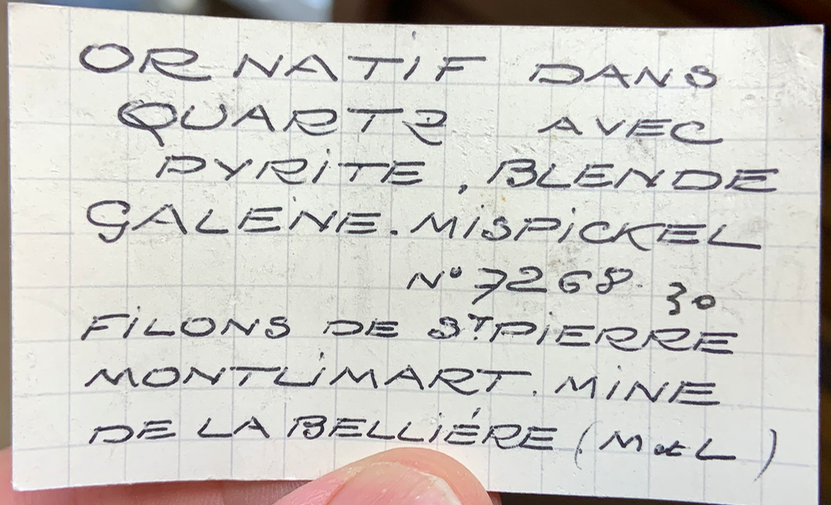 OR NATIF DANS
QUARTZ AVEC
PYRITE, BLENDE
GALENE. MISPICKEL
N° 7268. 30
FILONS DE ST PIERRE
MONTLIMART. MINE
DE LA BELLIÉRE (M et L)